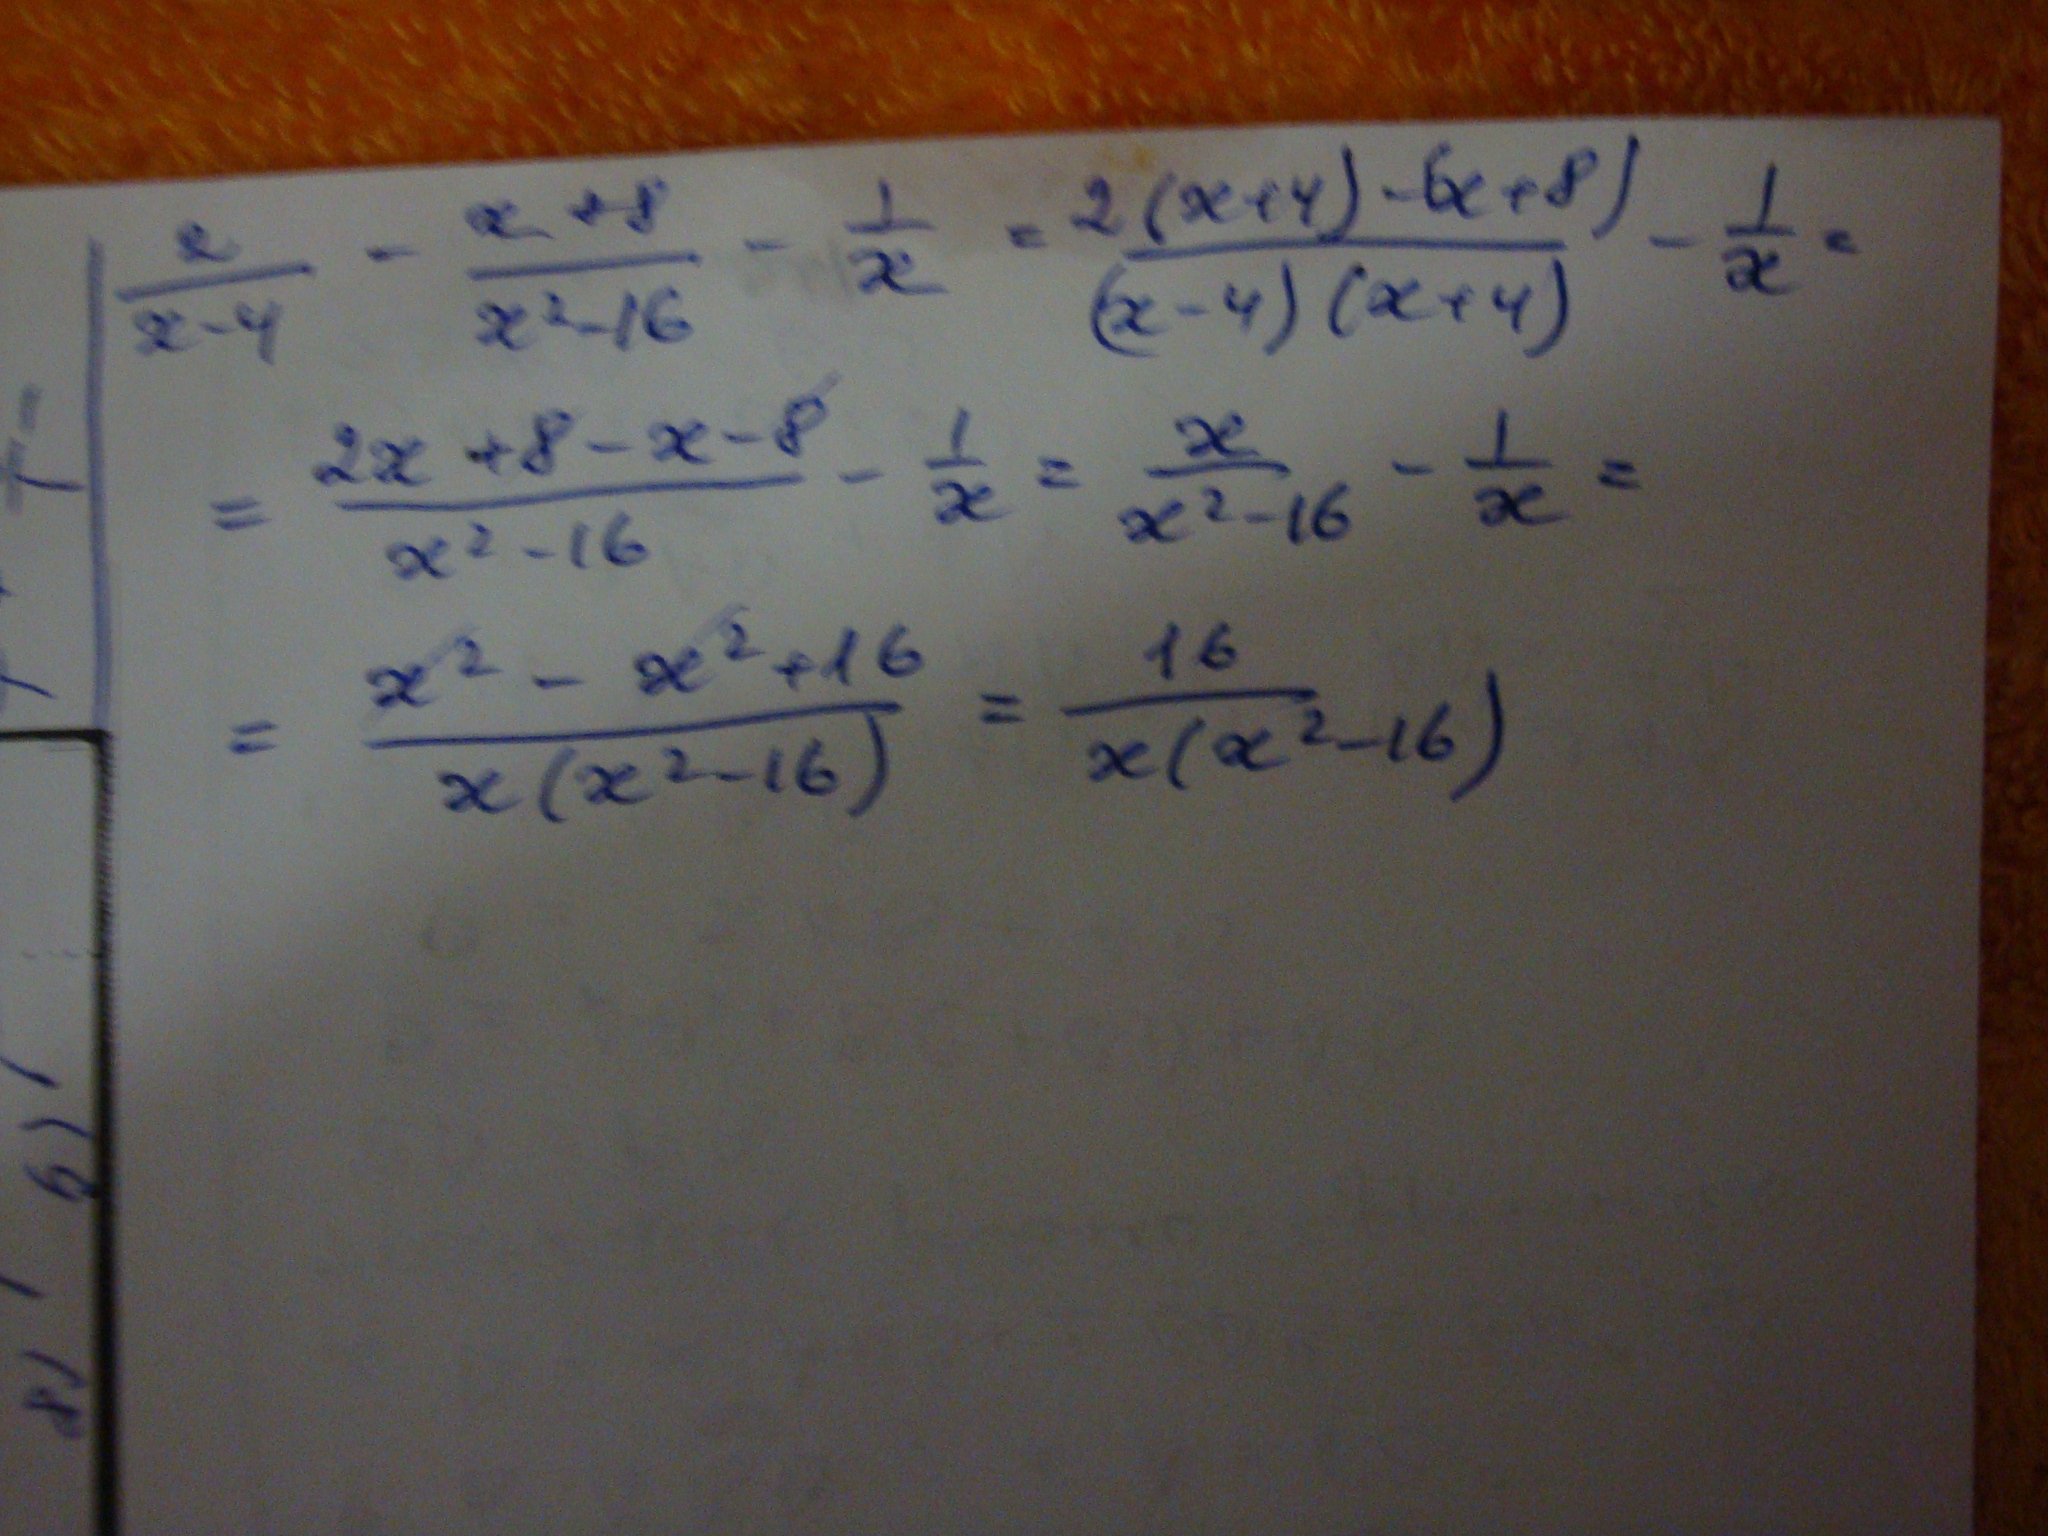 2/(x-4) - (x+8)/(x²-16) - 1/x = (2(x+4)-(x+8))/((x-4)(x+4)) - 1/x =
= (2x+8-x-8)/(x²-16) - 1/x = x/(x²-16) - 1/x =
= (x²-x²+16)/(x(x²-16)) = 16/(x(x²-16))